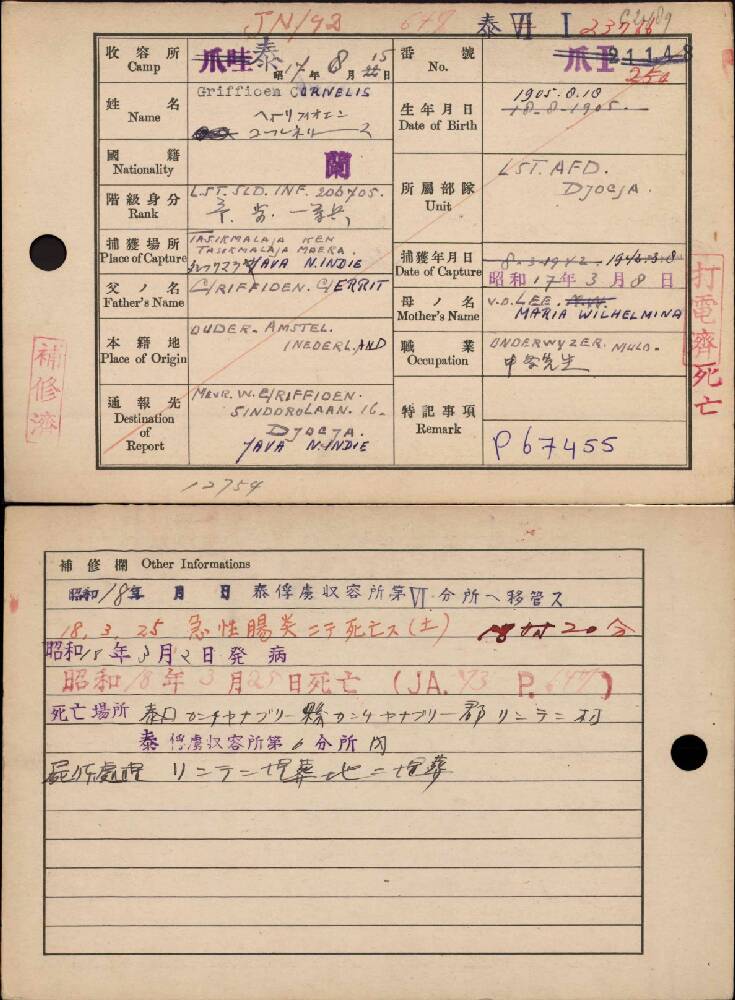 JN/42 647 泰 VI I 23786
收容所 Camp 爪哇 泰 昭 17年 8月 15日
番號 No. 爪Ⅱ 21148
254
姓名 Name Griffioen CORNELIS
生年月日 Date of Birth 1905.8.18
18-8-1905.
國籍 Nationality 蘭
階級身分 Rank LST. SLD. INF. 206705.
一等兵
所屬部隊 Unit LST. AFD.
DJOCJA.
捕獲場所 Place of Capture TASIKMALAJA KEN
TASIKMALAJA
JAVA N.INDIE
捕獲年月日 Date of Capture 8-3-1942 1942.3.8
昭和 17年 3月 8日
父ノ名 Father's Name GRIFFIOEN. GERRIT
母ノ名 Mother's Name V.D. LEE.
MARIA WILHELMINA
本籍地 Place of Origin OUDER. AMSTEL.
NEDERLAND
職業 Occupation ONDERWYZER. MULO.
通報先 Destination of Report MEVR. W. GRIFFIOEN.
SINDOROLAAN. 16.
DJOCJA.
JAVA N.INDIE
特記事項 Remark
P 67455
補修濟
打電濟 死亡
12754
補修欄 Other Informations
昭和18年 月 日 泰俘虜収容所第VI分所ヘ移管ス
18.3.25 急性腸炎ニテ死亡ス(土) 20分
昭和18年3月2日発病
昭和18年3月25日死亡 (JA. 43 P. 647)
死亡場所 泰国カンチヤナブリー縣カンチヤナブリー郡リンテン村
泰俘虜収容所第6分所内
屍体處理 リンテン埋葬地ニ埋葬